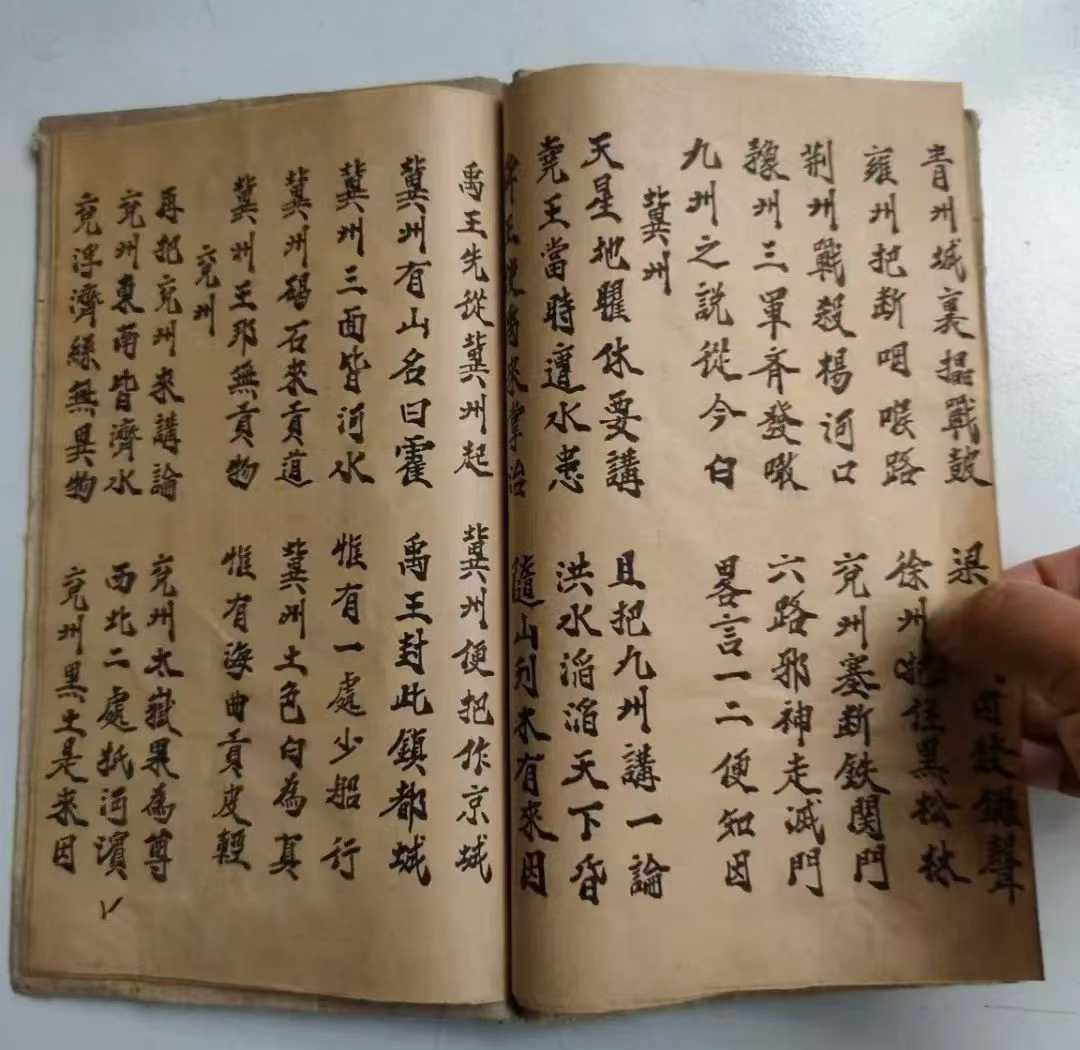 青州城裏擂戰鼓 梁
雍州把断咽喉路 徐州把住黑松林
荆州戰殺楊河口 兖州塞断鉄関門
豫州三軍斉發噉 六路邪神走滅門
九州之説從今白 畧言一二便知因
冀州
天星地曜休要講 且把九州講一論
堯王當時遭水患 洪水滔滔天下昏
來掌治 隨山刋木有來因
禹王先從冀州起 冀州便把作京城
冀州有山名曰霍 禹王封此鎮都城
冀州三面皆河水 惟有一處少船行
冀州碣石來貢道 冀州土色白為真
冀州王耶無貢物 惟有海曲貢皮輕
兖州
再把兖州來講論 兖州太嶽果為尊
兖州東南皆濟水 西北二處抵河濵
兖浮濟縣無異物 兖州黑土是來因